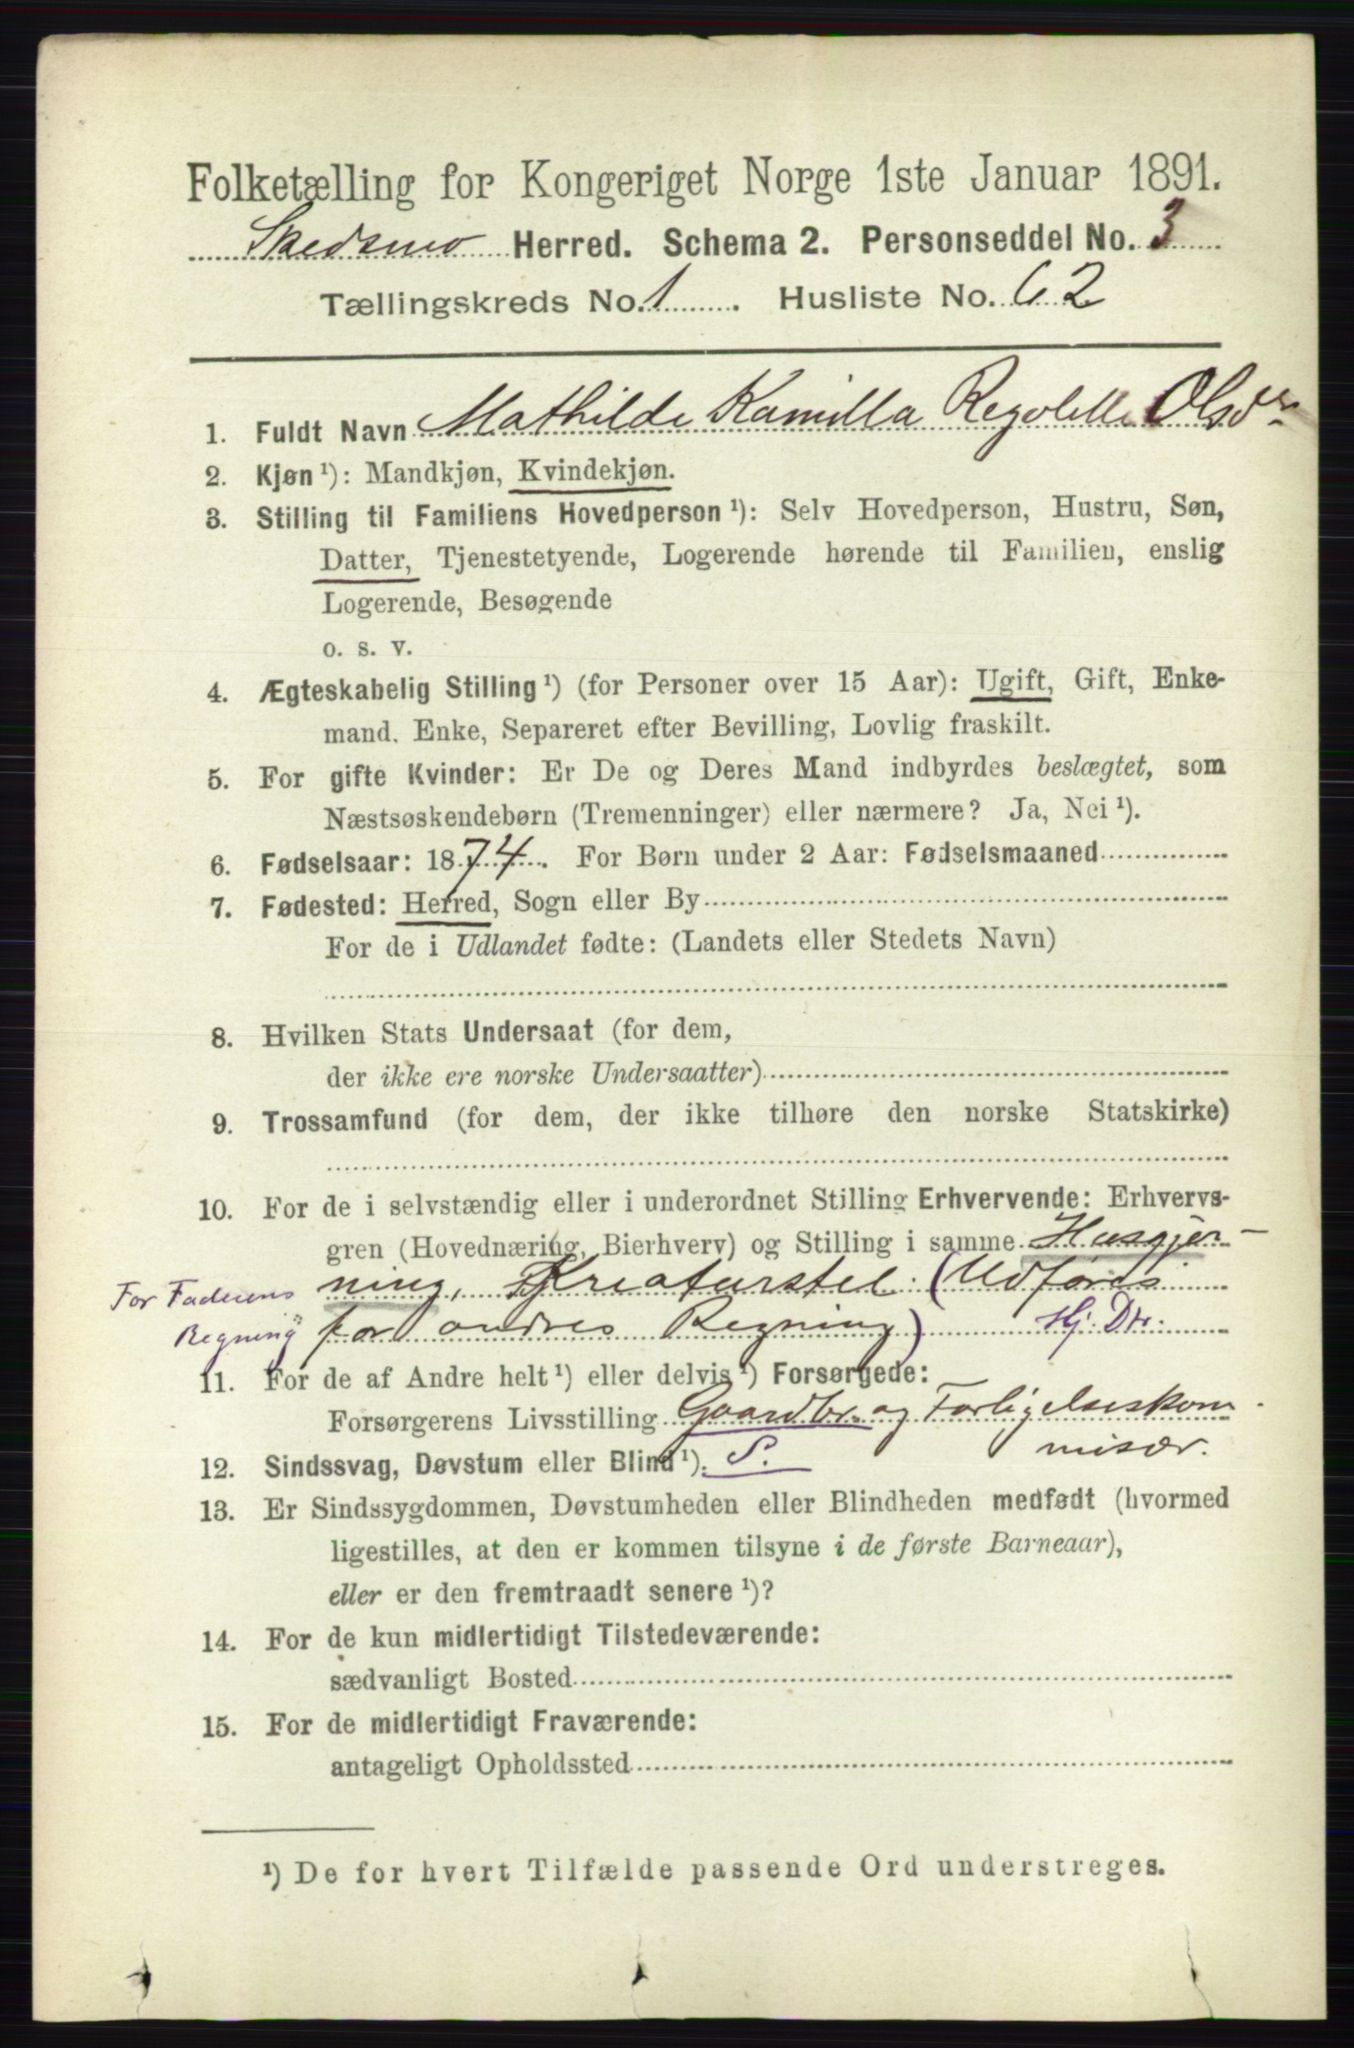 Folketælling for Kongeriget Norge 1ste Januar 1891.
Skedsmo Herred. Schema 2. Personseddel No. 3
Tællingskreds No. 1. Husliste No. 62
1. Fuldt Navn Mathilde Kamilla Regolette Olsen
2. Kjøn ¹): Mandkjøn, Kvindekjøn.
3. Stilling til Familiens Hovedperson ¹): Selv Hovedperson, Hustru, Søn,
Datter, Tjenestetyende, Logerende hørende til Familien, enslig
Logerende, Besøgende
o. s. v.
4. Ægteskabelig Stilling ¹) (for Personer over 15 Aar): Ugift, Gift, Enke-
mand, Enke, Separeret efter Bevilling, Lovlig fraskilt.
5. For gifte Kvinder: Er De og Deres Mand indbyrdes beslægtet, som
Næstsøskendebørn (Tremenninger) eller nærmere? Ja, Nei ¹).
6. Fødselsaar: 1874. For Børn under 2 Aar: Fødselsmaaned
7. Fødested: Herred, Sogn eller By
For de i Udlandet fødte: (Landets eller Stedets Navn)
8. Hvilken Stats Undersaat (for dem,
der ikke ere norske Undersaatter)
9. Trossamfund (for dem, der ikke tilhøre den norske Statskirke)
10. For de i selvstændig eller i underordnet Stilling Erhvervende: Erhvervs-
gren (Hovednæring, Bierhverv) og Stilling i samme Husgjer-
For Faderens ning, Kreaturstel (Udføres
Regning for andres Regning) Hj. Dtr.
11. For de af Andre helt ¹) eller delvis ¹) Forsørgede:
Forsørgerens Livsstilling Gaardbr. og Forligelseskom
misær.
12. Sindssvag, Døvstum eller Blind ¹). S.
13. Er Sindssygdommen, Døvstumheden eller Blindheden medfødt (hvormed
ligestilles, at den er kommen tilsyne i de første Barneaar),
eller er den fremtraadt senere ¹)?
14. For de kun midlertidigt Tilstedeværende:
sædvanligt Bosted
15. For de midlertidigt Fraværende:
antageligt Opholdssted
¹) De for hvert Tilfælde passende Ord understreges.